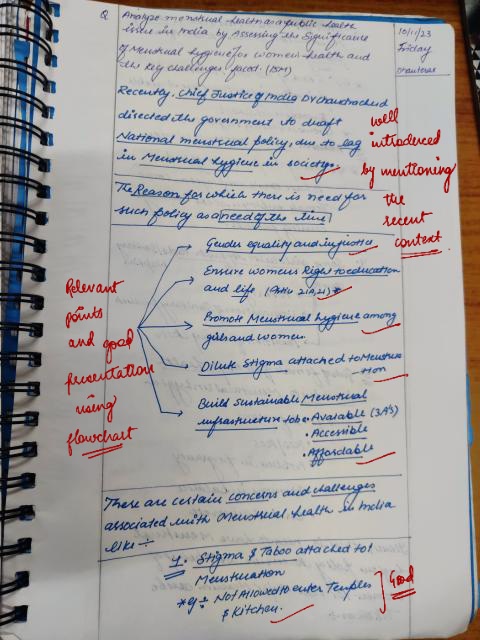 Q Analyze menstrual health as a public health
issue in India by Assessing the Significance
of Menstrual hygiene for women health and
the key challenges faced. (15M)
10/11/23
Friday
Dhanteras
Recently, Chief Justice of India DY Chandrachud
directed the government to draft
National menstrual policy, due to lag
in Menstrual hygiene in society.
well
introduced
by mentioning
the
recent
context.
The Reason for which there is need for
such policy as a need of the time
Gender equality and injustice
Ensure womens Right to education
and life (Article 21A, 21)
Promote Menstrual hygiene among
girls and women.
Dilute Stigma attached to Menstrua
tion
Build Sustainable Menstrual
infrastructure to be • Available (3A's)
• Accessible
• Affordable
Relevant
points
and good
presentation
using
flowchart
There are certain concerns and challenges
associated with Menstrual health in India
like ÷
1. Stigma & Taboo attached to
Menstruation
* eg ÷ Not Allowed to enter Temples
& Kitchen.
Good